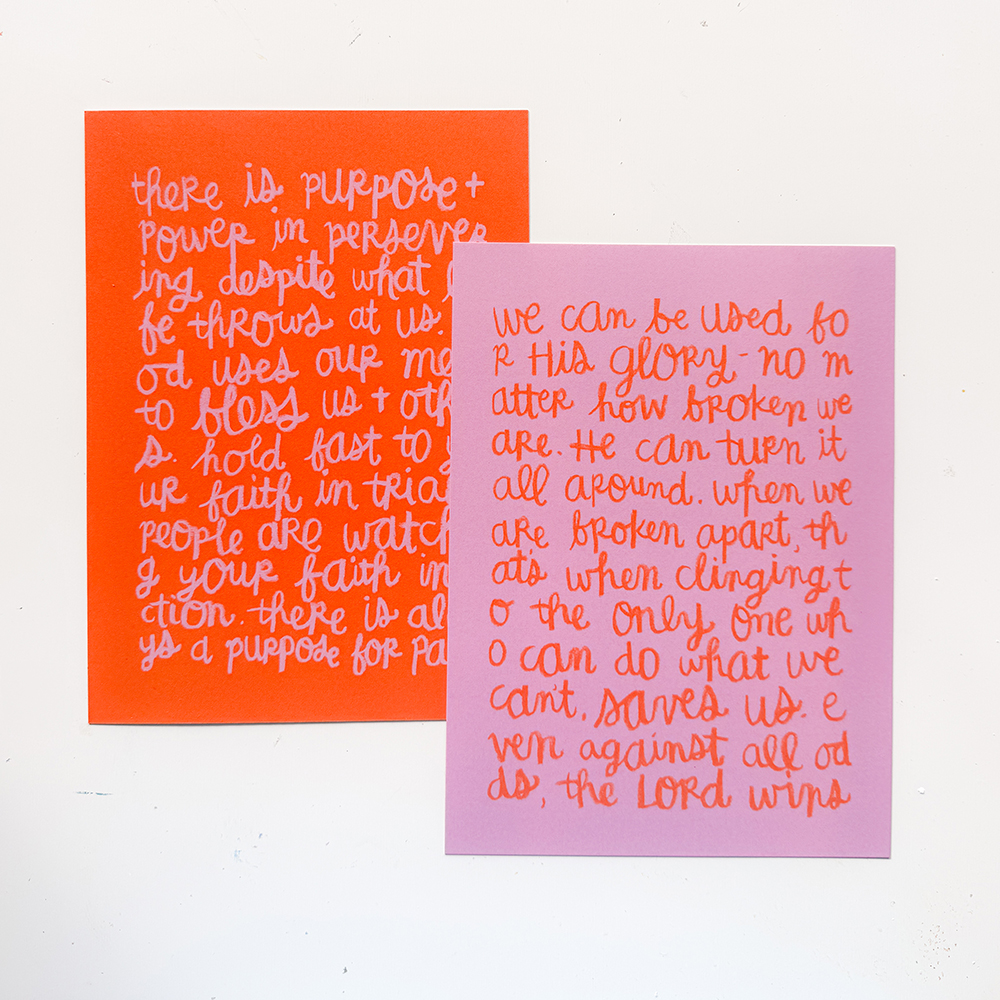 there is purpose +
power in persever
ing despite what
fe throws at us.
od uses our me
to bless us + oth
s. hold fast to
ur faith in tria
people are watch
g your faith in
ction. there is al
ys a purpose for pa
we can be used fo
r His glory - no m
atter how broken we
are. He can turn it
all around. when we
are broken apart, th
at's when clinging t
o the only one wh
o can do what we
can't, saves us. e
ven against all od
ds, the Lord wins